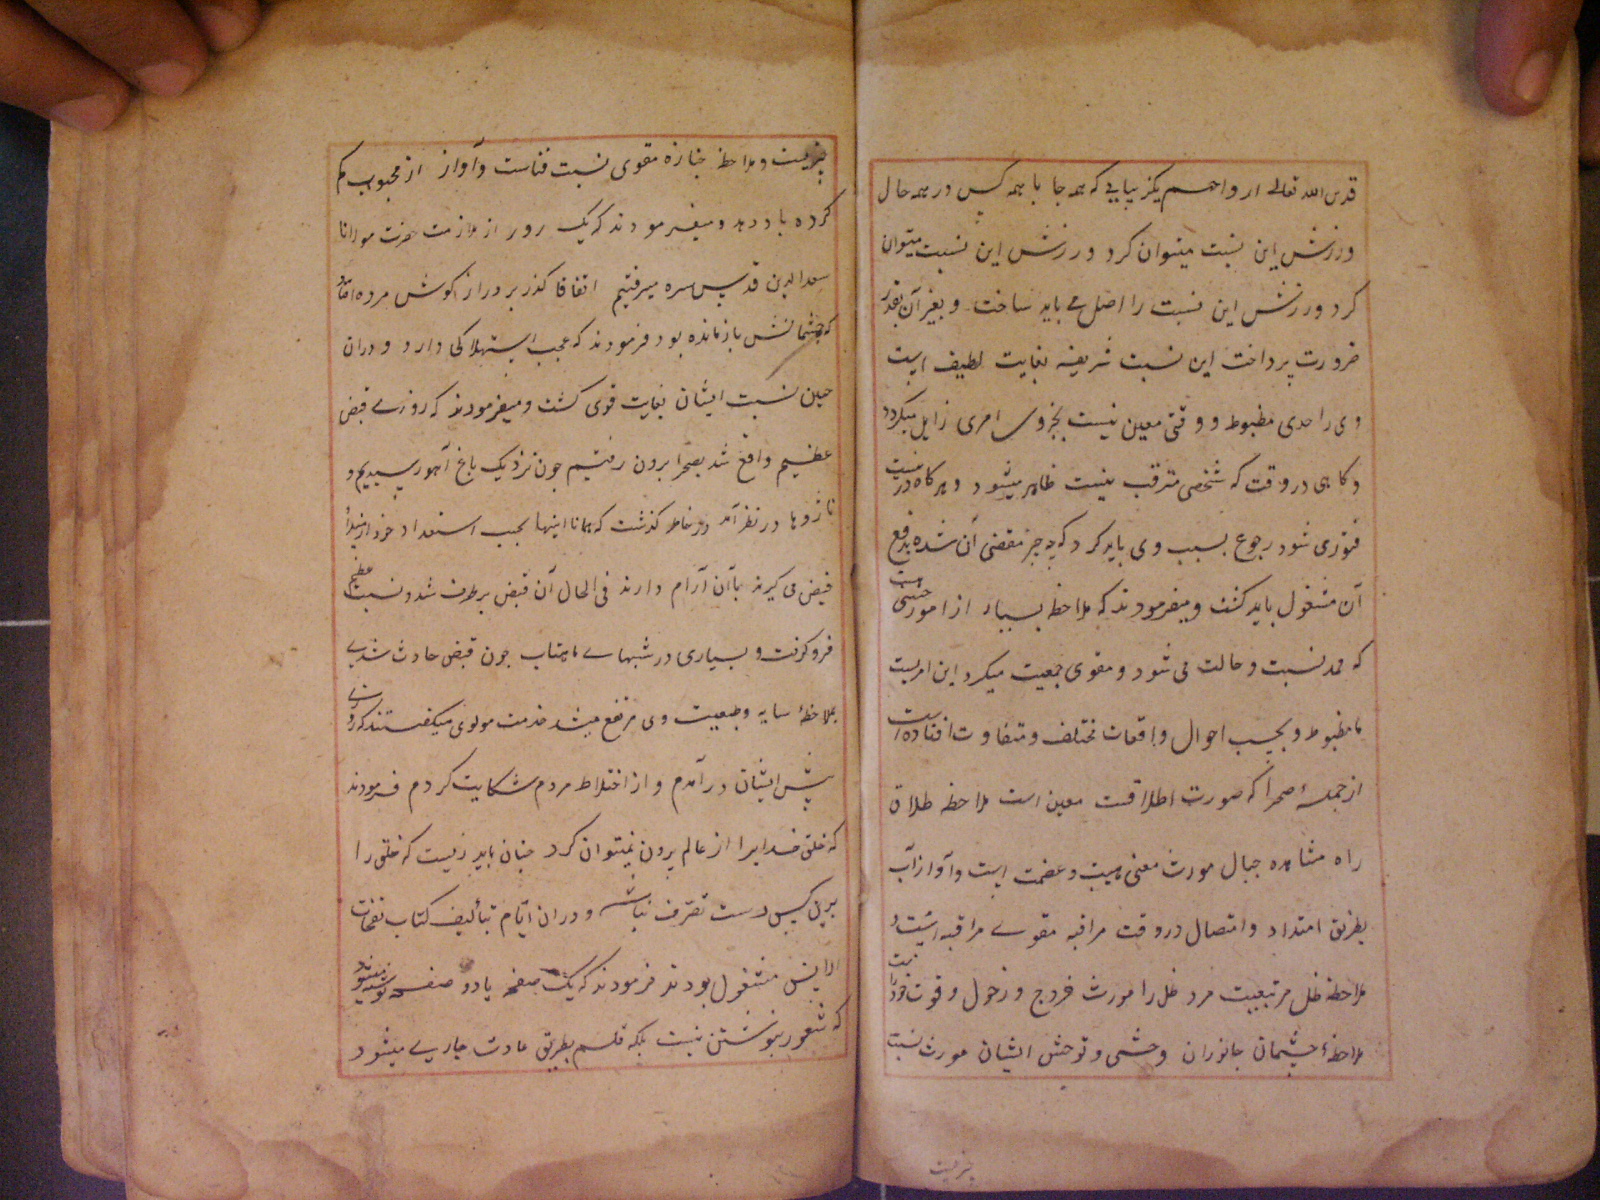 قدس الله تعالی ارواحهم که همه جا با همه کس در همه حال
ورزش این نسبت میتوان کرد ورزش این نسبت میتوان
کرد ورزش این نسبت را اصل می باید ساخت و بغیر آن بقدر
ضرورت پرداخت این نسبت شریفه بغایت لطیف است
وی را حدی مضبوط و وقتی معین نیست بجزوی امری زایل میگردد
و کاهی در وقت که شخصی مترقب نیست ظاهر میشود و هرکاه در نسبت
فتوری شود رجوع بسبب وی باید کرد که چه چیز مقتضی آن شده بدفع
آن مشغول باید کشت و میفرمودند که ملاحظه بسیار از امور حسی هست
که ممد نسبت و حالت می شود و مقوی جمعیت میکردد این امریست
نامضبوط و بحسب احوال و اقعات مختلف و متفاوت افتاده است
از جمله صحرا که صورت اطلاقت معین است ملاحظه طلاق
راه مشاهده جبال مورث معنی هیبت و عضمت است و آواز آب
بطریق امتداد و اتصال در وقت مراقبه مقوی مراقبه است و
ملاحظه ظل مر تبعیت مرد ظل را مورث خروج و زحول و قوت خود را
ملاحظه چشمان جانوران وحشی و توحش ایشان مورث نسبت
و ملاحظه جنازه مقوی نسبت فناست و آواز از محبوب کم
کرده یاد دهد و میفرمودند که یک روز از ملازمت حضرت مولانا
سعدالدین قدس سره میرفتیم اتفاقا کذر بر دراز کوش مرده افتاد
که چشمانش باز مانده بود فرمودند که عجب استهلاکی دارد و دران
حین نسبت ایشان بغایت قوی کشت و میفرمودند که روزی قبض
عظیم واقع شد بصحرا برون رفتیم جون نزدیک باغ آهو رسیدیم و
ناژوها در نظر آمد در خاطر کذشت که همانا اینها بحسب استعداد خود از مبدأ
فیض می کیرند باآن آرام دارند فی الحال آن قبض برطرف شد و نسبت عظیم
فرو کرفت و بسیاری در شبهای ماهتاب جون قبض حادث شدی
بملاحظه سایه وی مرتفع میشد خدمت مولوی میکفتند که روزی
پیش ایشان در آمدم و از اختلاط مردم شکایت کردم فرمودند
که خلق خدایرا از عالم برون نمیتوان کرد چنان باید زیست که خلق را
بریل کس دست تصرف نباشد و دران ایام بتألیف کتاب نفحات
الانس مشغول بودند فرمودند که یک صفحه یا دو صفحه نوشته میشود
که شعور بنوشتن نیست بلکه قلم بطریق عادت جاری میشود